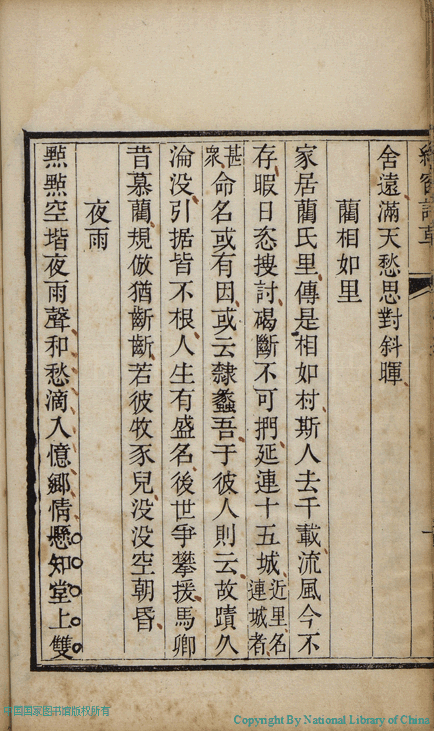 舍遠滿天愁思對斜暉
藺相如里
家居藺氏里傳是相如村斯人去千載流風今不
存暇日恣搜討碣斷不可捫延連十五城近里名連城者
甚衆命名或有因或云隸蠡吾于彼人則云故蹟久
淪没引据皆不根人生有盛名後世争攀援馬卿
昔慕藺規倣猶齗齗若彼牧豕兒没没空朝昬
夜雨
點點空堦夜雨聲和愁滴入憶鄉情懸知堂上雙
中国国家图书馆版权所有
Copyright By National Library of China